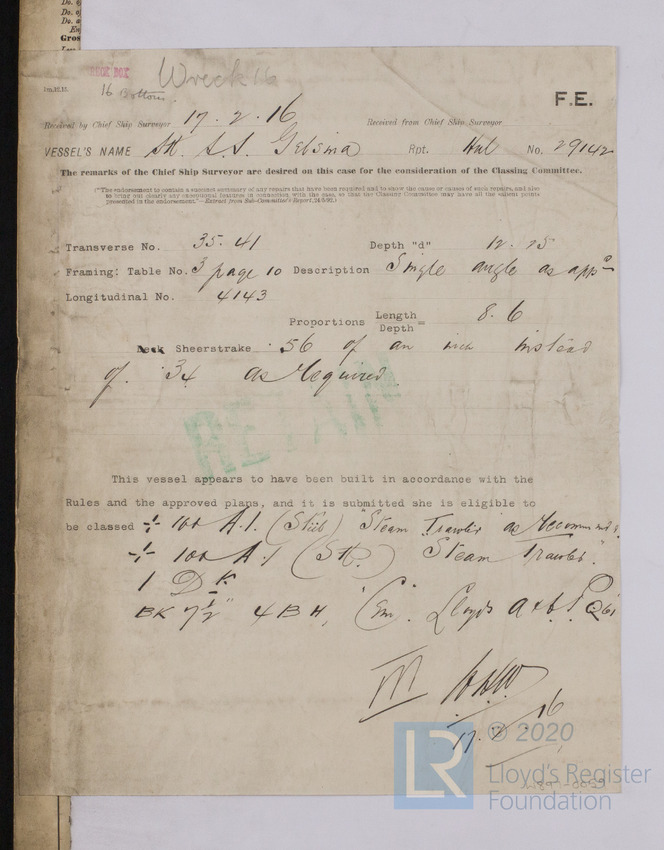 Do. o
Do. a
Gros
WRECK BOX
Wreck 16
16 Bottom.
F.E.
Received by Chief Ship Surveyor 17.2.16 Received from Chief Ship Surveyor
VESSEL'S NAME St. S.S. Gelsina Rpt. Hul No. 29142
The remarks of the Chief Ship Surveyor are desired on this case for the consideration of the Classing Committee.
("The endorsement to contain a succinct summary of any repairs that have been required and to show the cause or causes of such repairs, and also
to bring out clearly any exceptional features in connection with the case, so that the Classing Committee may have all the salient points
presented in the endorsement."—Extract from Sub-Committee's Report,
Transverse No. 35.41 Depth "d" 12.75
Framing: Table No. 3 page 10 Description Single angle as appd
Longitudinal No. 4143
Proportions Length/Depth = 8.6
Deck Sheerstrake .56 of an inch instead
of .34 as Required.
RETAIN
This vessel appears to have been built in accordance with the
Rules and the approved plans, and it is submitted she is eligible to
be classed + 100 A.1. (Steel) "Steam Trawler" as Recommended.
+ 100 A.1 (St.) "Steam Trawler."
1 DK
BK 7½" 4 B H, Lloyds A & C P
17.2.16
LR
© 2020
Lloyd's Register
Foundation
W897-0059